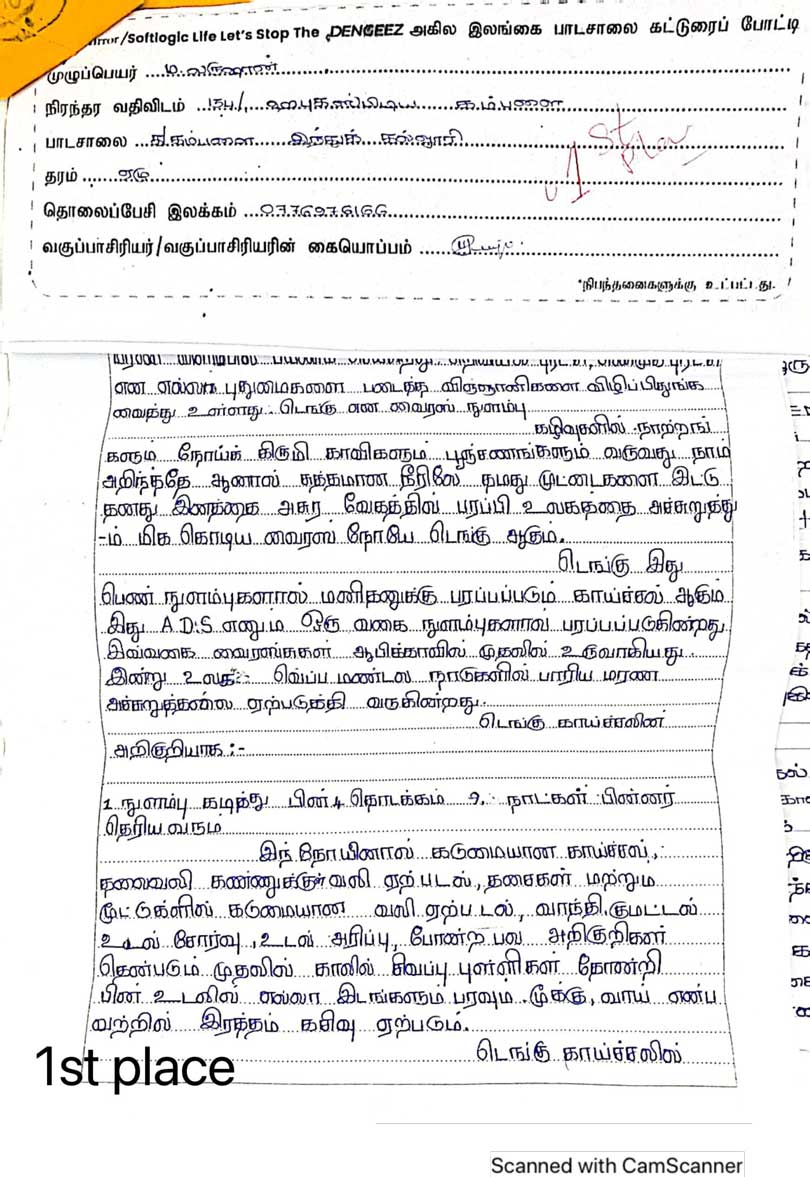 /Softlogic Life Let's Stop The DENGEEZ அகில இலங்கை பாடசாலை கட்டுரைப் போட்டி
முழுப்பெயர்
நிரந்தர வதிவிடம்
பாடசாலை இந்துக் கல்லூரி
1st place
தரம் ஏழு
தொலைப்பேசி இலக்கம்
வகுப்பாசிரியர்/வகுப்பாசிரியரின் கையொப்பம்
*நிபந்தனைகளுக்கு உட்பட்டது.
என எல்லா புதுமைகளை படைத்த விஞ்ஞானிகளை விழிப்பிதுங்க
வைத்து உள்ளது டெங்கு என வைரஸ் நுளம்பு
கழிவுகளில் நாற்றங்
களும் நோய்க் கிருமி காவிகளும் பூஞ்சணங்களும் வருவது நாம்
அறிந்ததே ஆனால் சுத்தமான நீரிலே தமது முட்டைகளை இட்டு
தனது இனத்தை அசுர வேகத்தில் பரப்பி உலகத்தை அச்சுறுத்து
-ம் மிக கொடிய வைரஸ் நோயே டெங்கு ஆகும்.
டெங்கு இது
பெண் நுளம்புகளால் மனிதனுக்கு பரப்பப்படும் காய்ச்சல் ஆகும்
இது A.D.S எனும் ஒரு வகை நுளம்புகளால் பரப்பப்படுகின்றது
இவ்வகை வைரஸ்கள் ஆபிக்காவில் முதலில் உருவாகியது
இன்று உலக வெப்ப மண்டல நாடுகளில் பாரிய மரண
அச்சுறுத்தலை ஏற்படுத்தி வருகின்றது.
டெங்கு காய்ச்சலின்
அறிகுறியாக :-
1. நுளம்பு கடித்து பின் 4 தொடக்கம் 9. நாட்கள் பின்னர்
தெரிய வரும்
இந் நோயினால் கடுமையான காய்ச்சல்,
தலைவலி கண்ணுக்குள் வலி ஏற்படல், தசைகள் மற்றும்
மூட்டுகளில் கடுமையான வலி ஏற்படல், வாந்தி, குமட்டல்
உடல் சோர்வு, உடல் அரிப்பு, போன்ற பல அறிகுறிகள்
தென்படும் முதலில் காலில் சிவப்பு புள்ளிகள் தோன்றி
பின் உடலில் எல்லா இடங்களும் பரவும். மூக்கு, வாய் என்ப
வற்றில் இரத்தம் கசிவு ஏற்படும்.
டெங்கு காய்ச்சலில்
1st place
Scanned with CamScanner